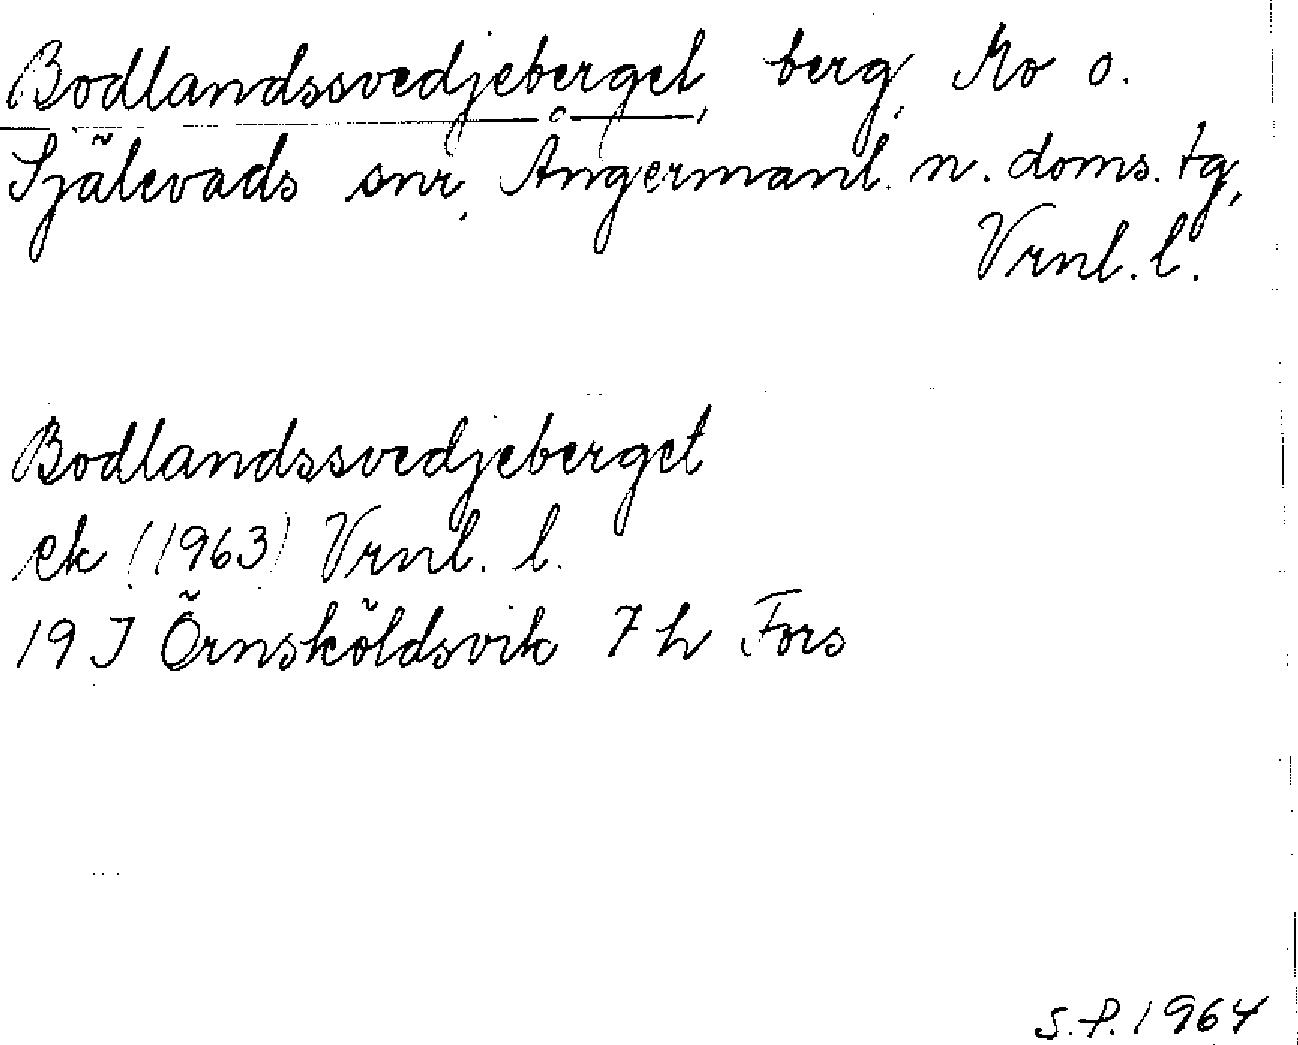 Bodlandssvedjeberget, berg, Mo o.
Själevads snr, Ångermanl. n. doms. tg,
Vrnl. l.
Bodlandssvedjeberget
ek (1963) Vrnl. l.
19 J Örnsköldsvik 7 h Fors
S.P. 1964